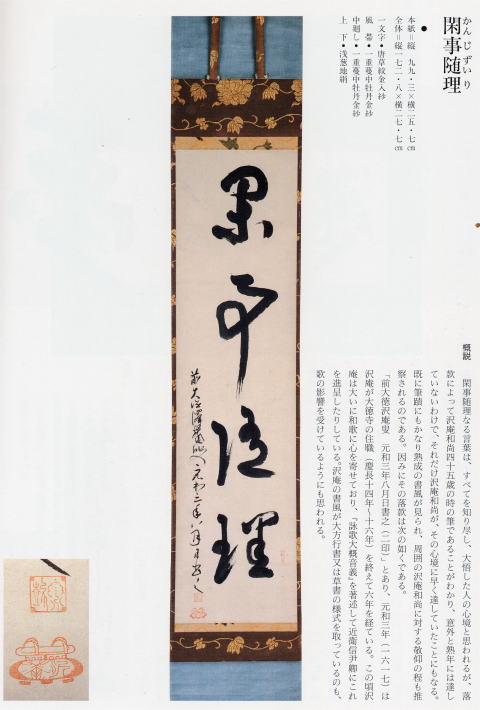 かんじずいり
閑事随理
●
本紙=縦 九九・三×横二五・七㎝
全体=縦一七二・八×横二七・七㎝
一文字・唐草紋金入紗
風帯・一重蔓中牡丹金紗
中廻し・一重蔓中牡丹金紗
上下・浅葱地絹
閑事随理
前大徳澤菴叟
元和三年八月日書之
概説
閑事随理なる言葉は、すべてを知り尽し、大悟した人の心境と思われるが、落
款によって沢庵和尚四十五歳の時の筆であることがわかり、意外と熟年には達し
ていないわけで、それだけ沢庵和尚が、その心境に早く達していたことにもなる。
既に筆蹟にもかなり熟成の書風が見られ、周囲の沢庵和尚に対する敬仰の程も推
察されるのである。因みにその落款は次の如くである。
「前大徳沢庵叟 元和三年八月日書之(二印)」とあり、元和三年(一六一七)は
沢庵が大徳寺の住職(慶長十四年〜十六年)を終えて六年を経ている。この頃沢
庵は大いに和歌に心を寄せており、『詠歌大概音義』を著述して近衛信尹卿にこれ
を進呈したりしている。沢庵の書風が大方行書又は草書の様式を取っているのも、
歌の影響を受けているようにも思われる。